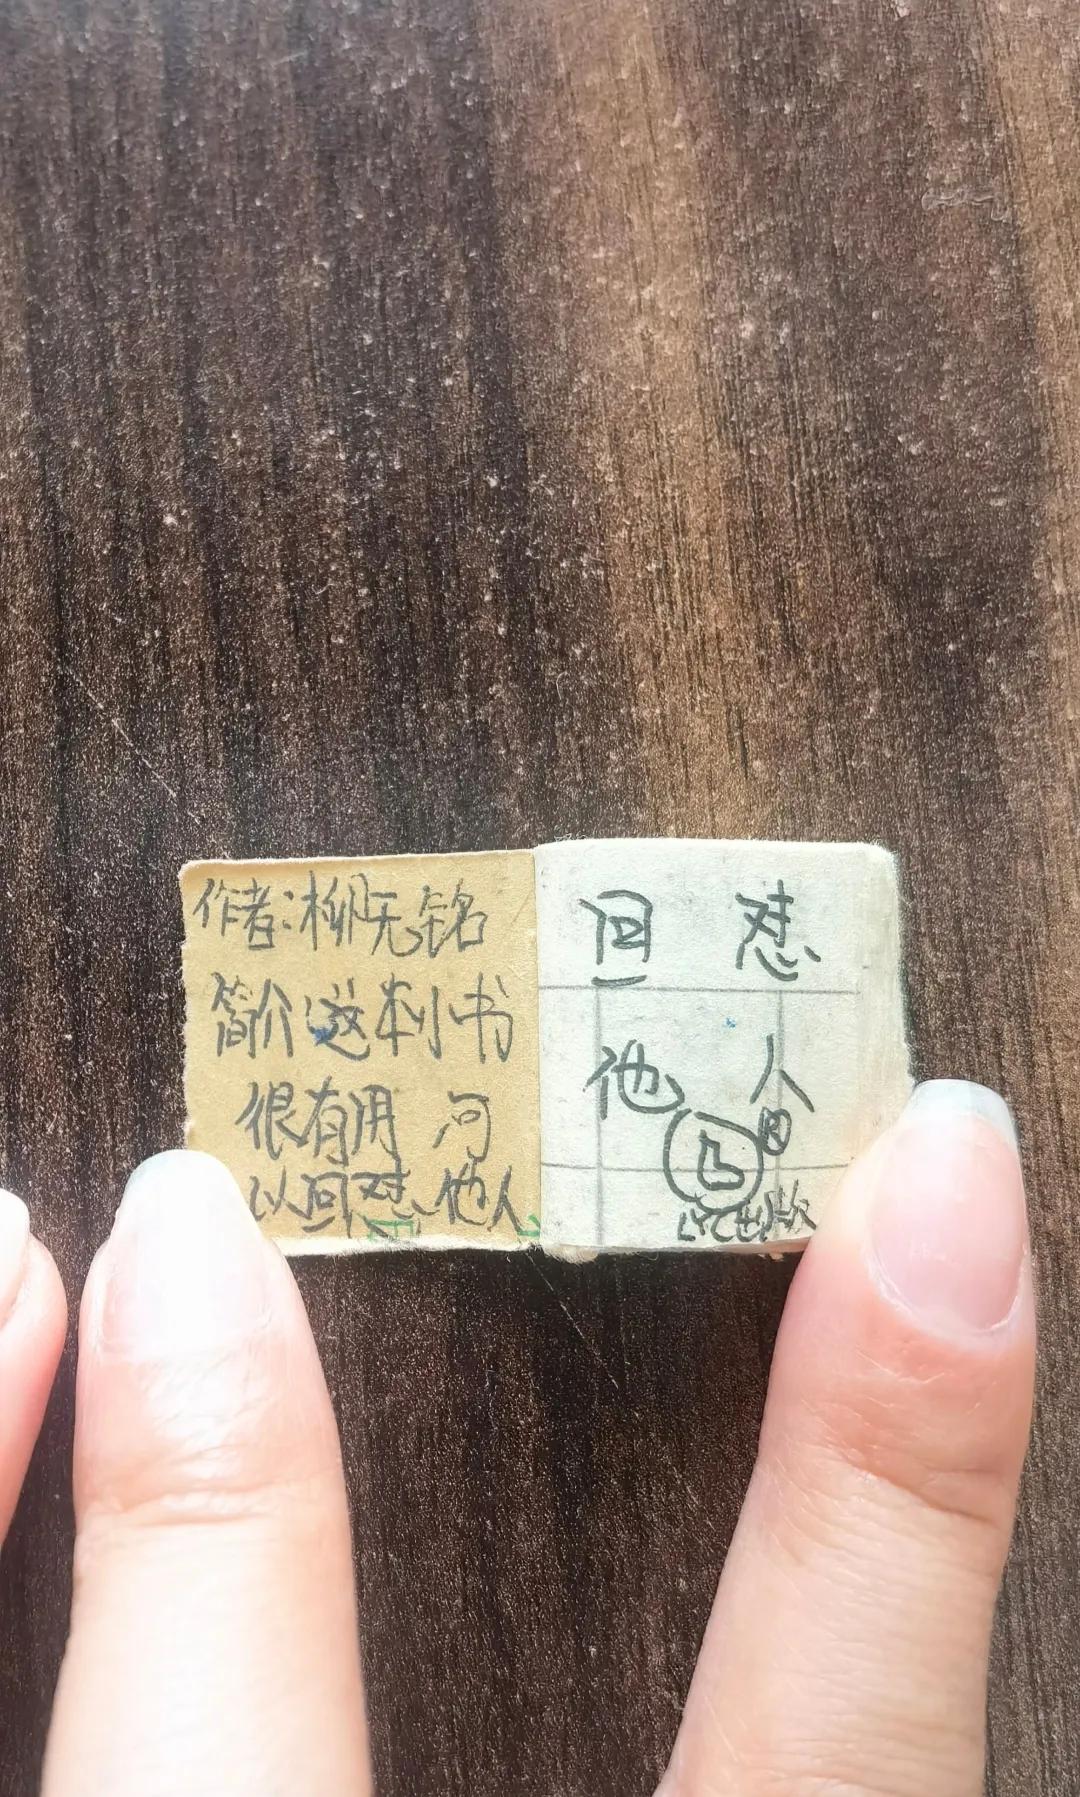 作者:柳无铭
简介:这本小书
很有用 可
以回怼他人
回怼
他人
出版